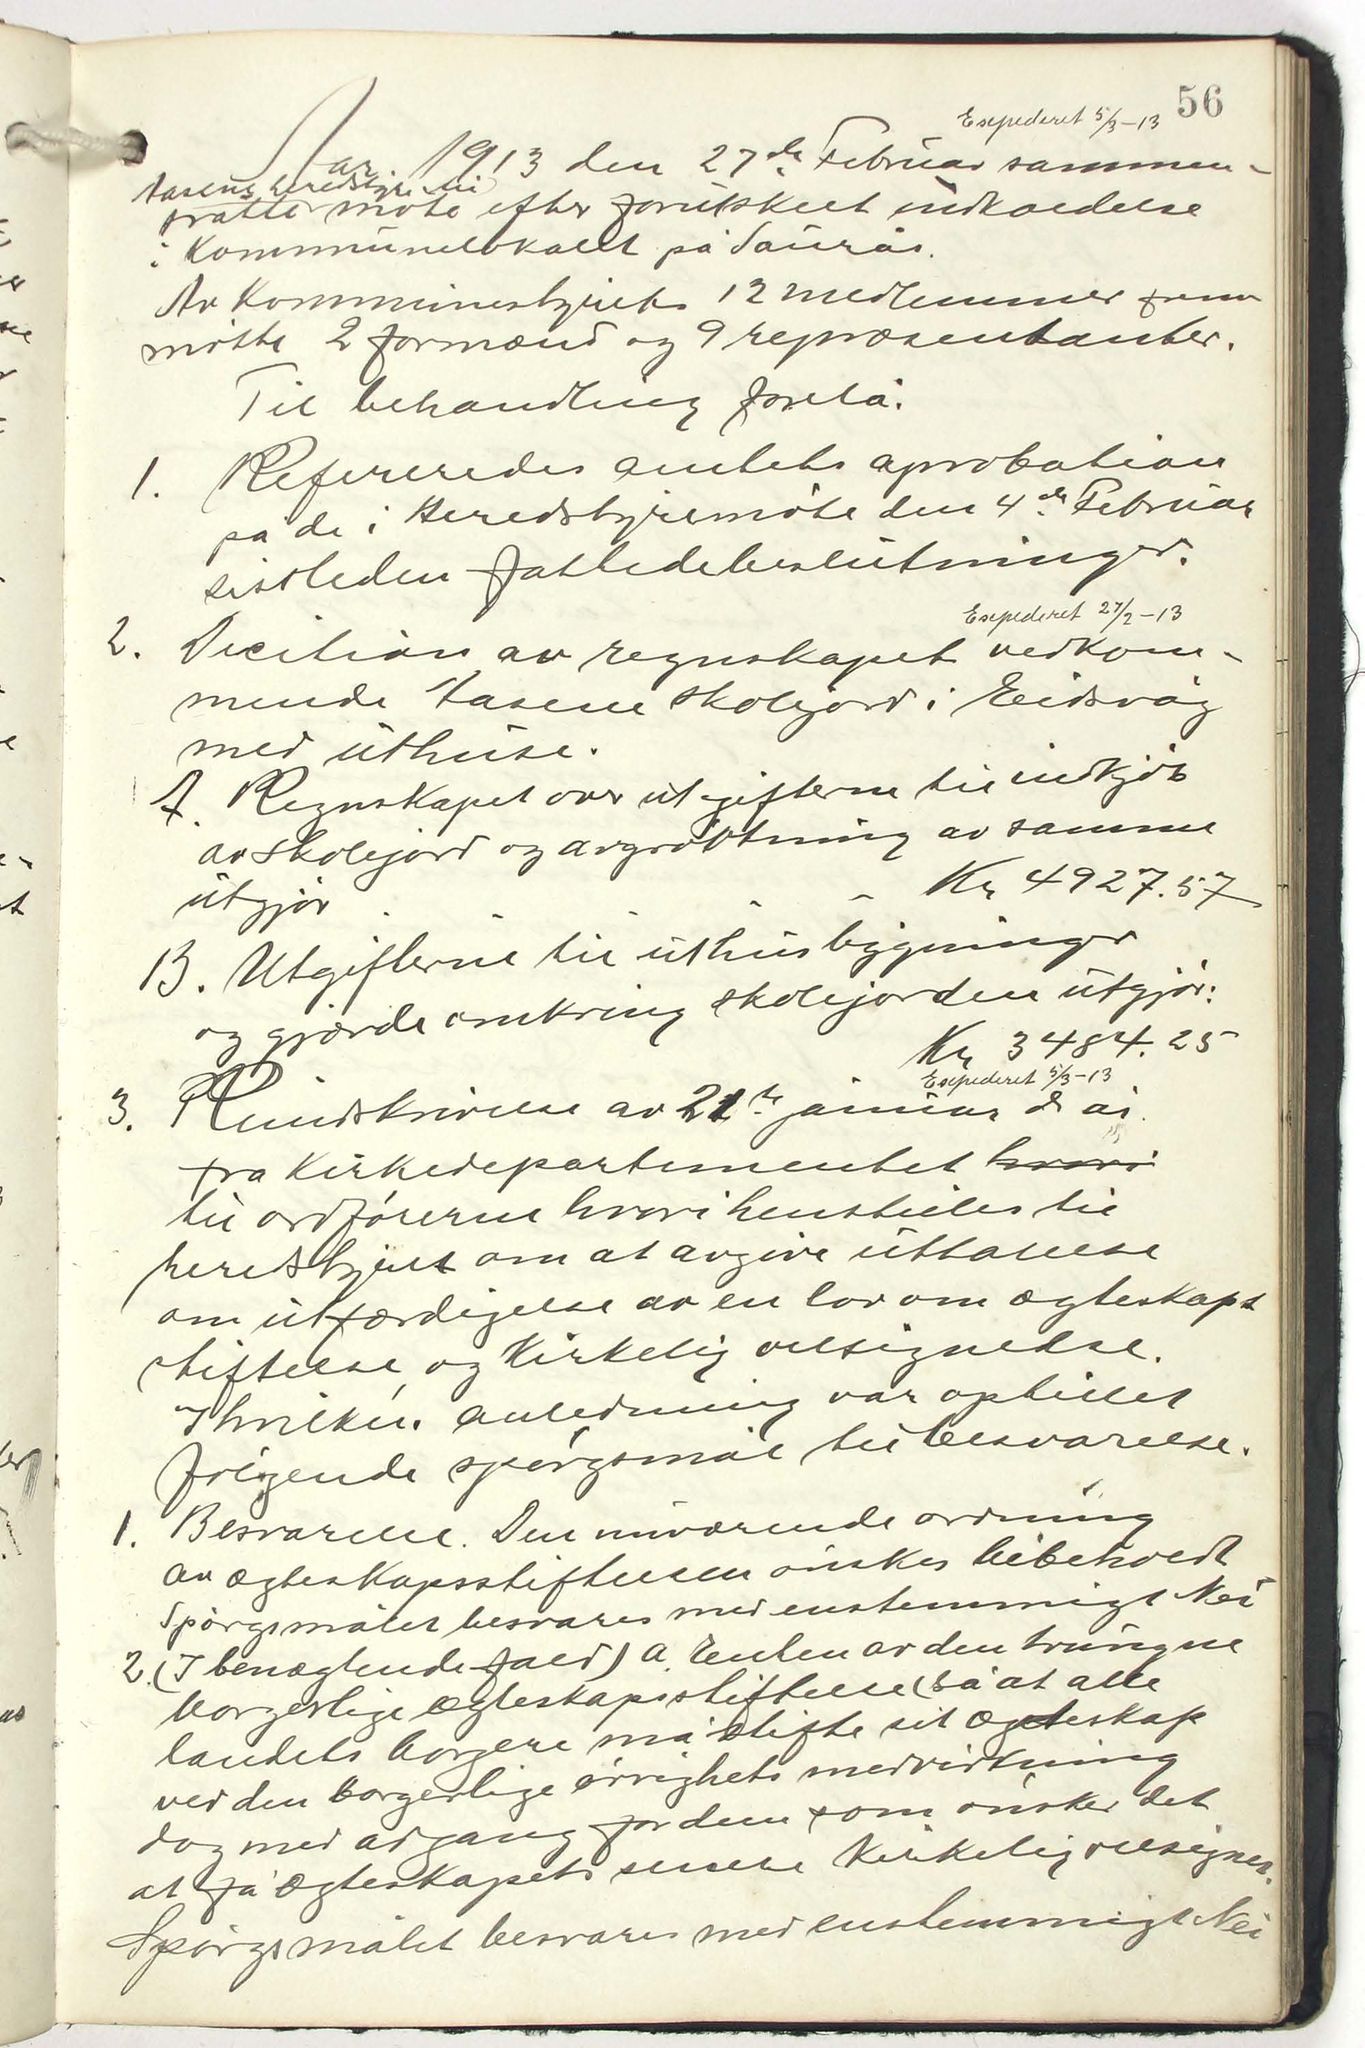 56
Exspederet 5/3-13
Aar 1913 den 27de Februar sammen-
Aasens heredstyre til
tratte møte efter forutskeet indkaldelse
i Kommunelokalet på Saurås.
Av Kommunestyrets 12 medlemmer frem
møtte 2 formænd og 9 repræsentanter.
Til behandling forelå.
1. Refereredes amtets aprobation
på de i Heredstyremøte den 4de Februar
sistleden fattedebeslutninger.
Exspederet 27/2-13
2. Decition av regnskapet vedkom-
mende Aasene skolejord i Eidsvåg
med uthuse.
A. Regnskapet over utgifterne til indkjøb
av skolejord og avgrøktning av samme
utgjør - Kr 4927.57
B. Utgifterne til uthusbygninger
og gjærde omkring skolejorden utgjør:
Kr 3484.25
Exspederet 5/3-13
3. Rundskrivelse av 21de januar d. år.
fra Kirkedepartementet hvori
til ordførerne hvori henstilles til
heredstyret om at avgive uttalelse
om utfærdigelse av en lov om ægteskaps
stiftelse og Kirkelig velsignelse.
I hvilken anledning var opstillet
følgende spørgsmål til besvarelse.
1. Besvarelse. Den nuværende ordning
av ægteskapsstiftelsen ønskes bibeholdt
Spørgsmålet besvares med enstemmigt Nei
2. (I benægtende fald) a. Enten av den tvungne
borgerlige ægteskapsstiftelse (så at alle
landets borgere må stifte sit ægteskap
ved den borgerlige øvrighets medvirkning
dog med adgang for dem som ønsker det
at få ægteskapets senere Kirkelig velsignes.
Spørgsmålet besvares med enstemmigt Nei